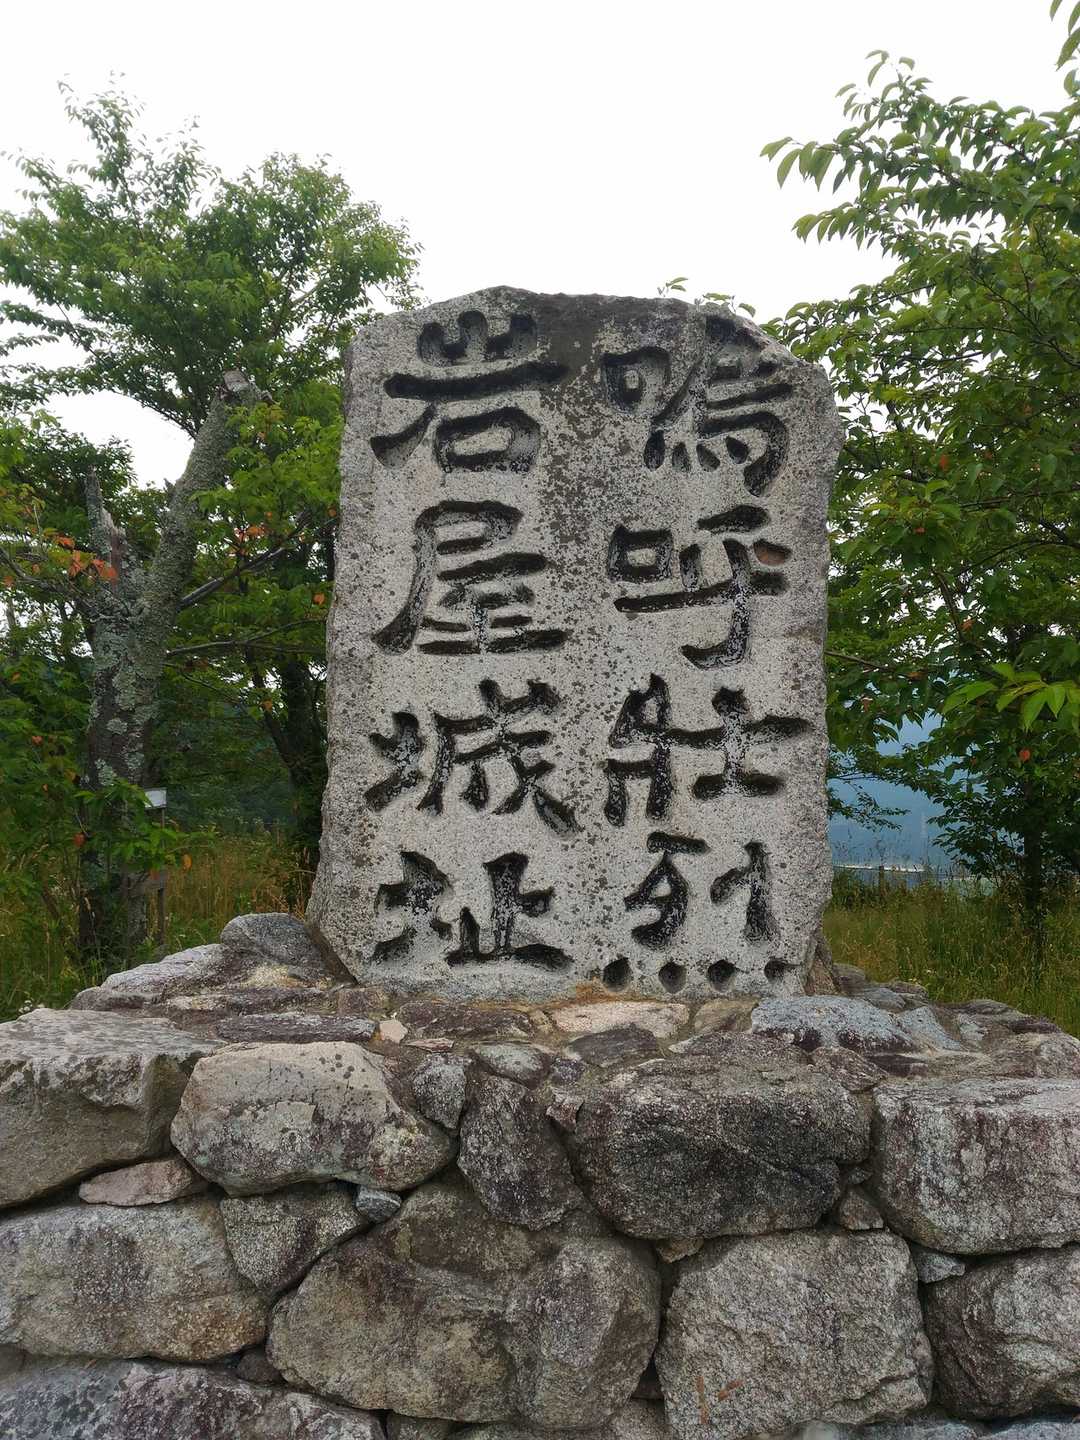 嗚呼壮烈
岩屋城址